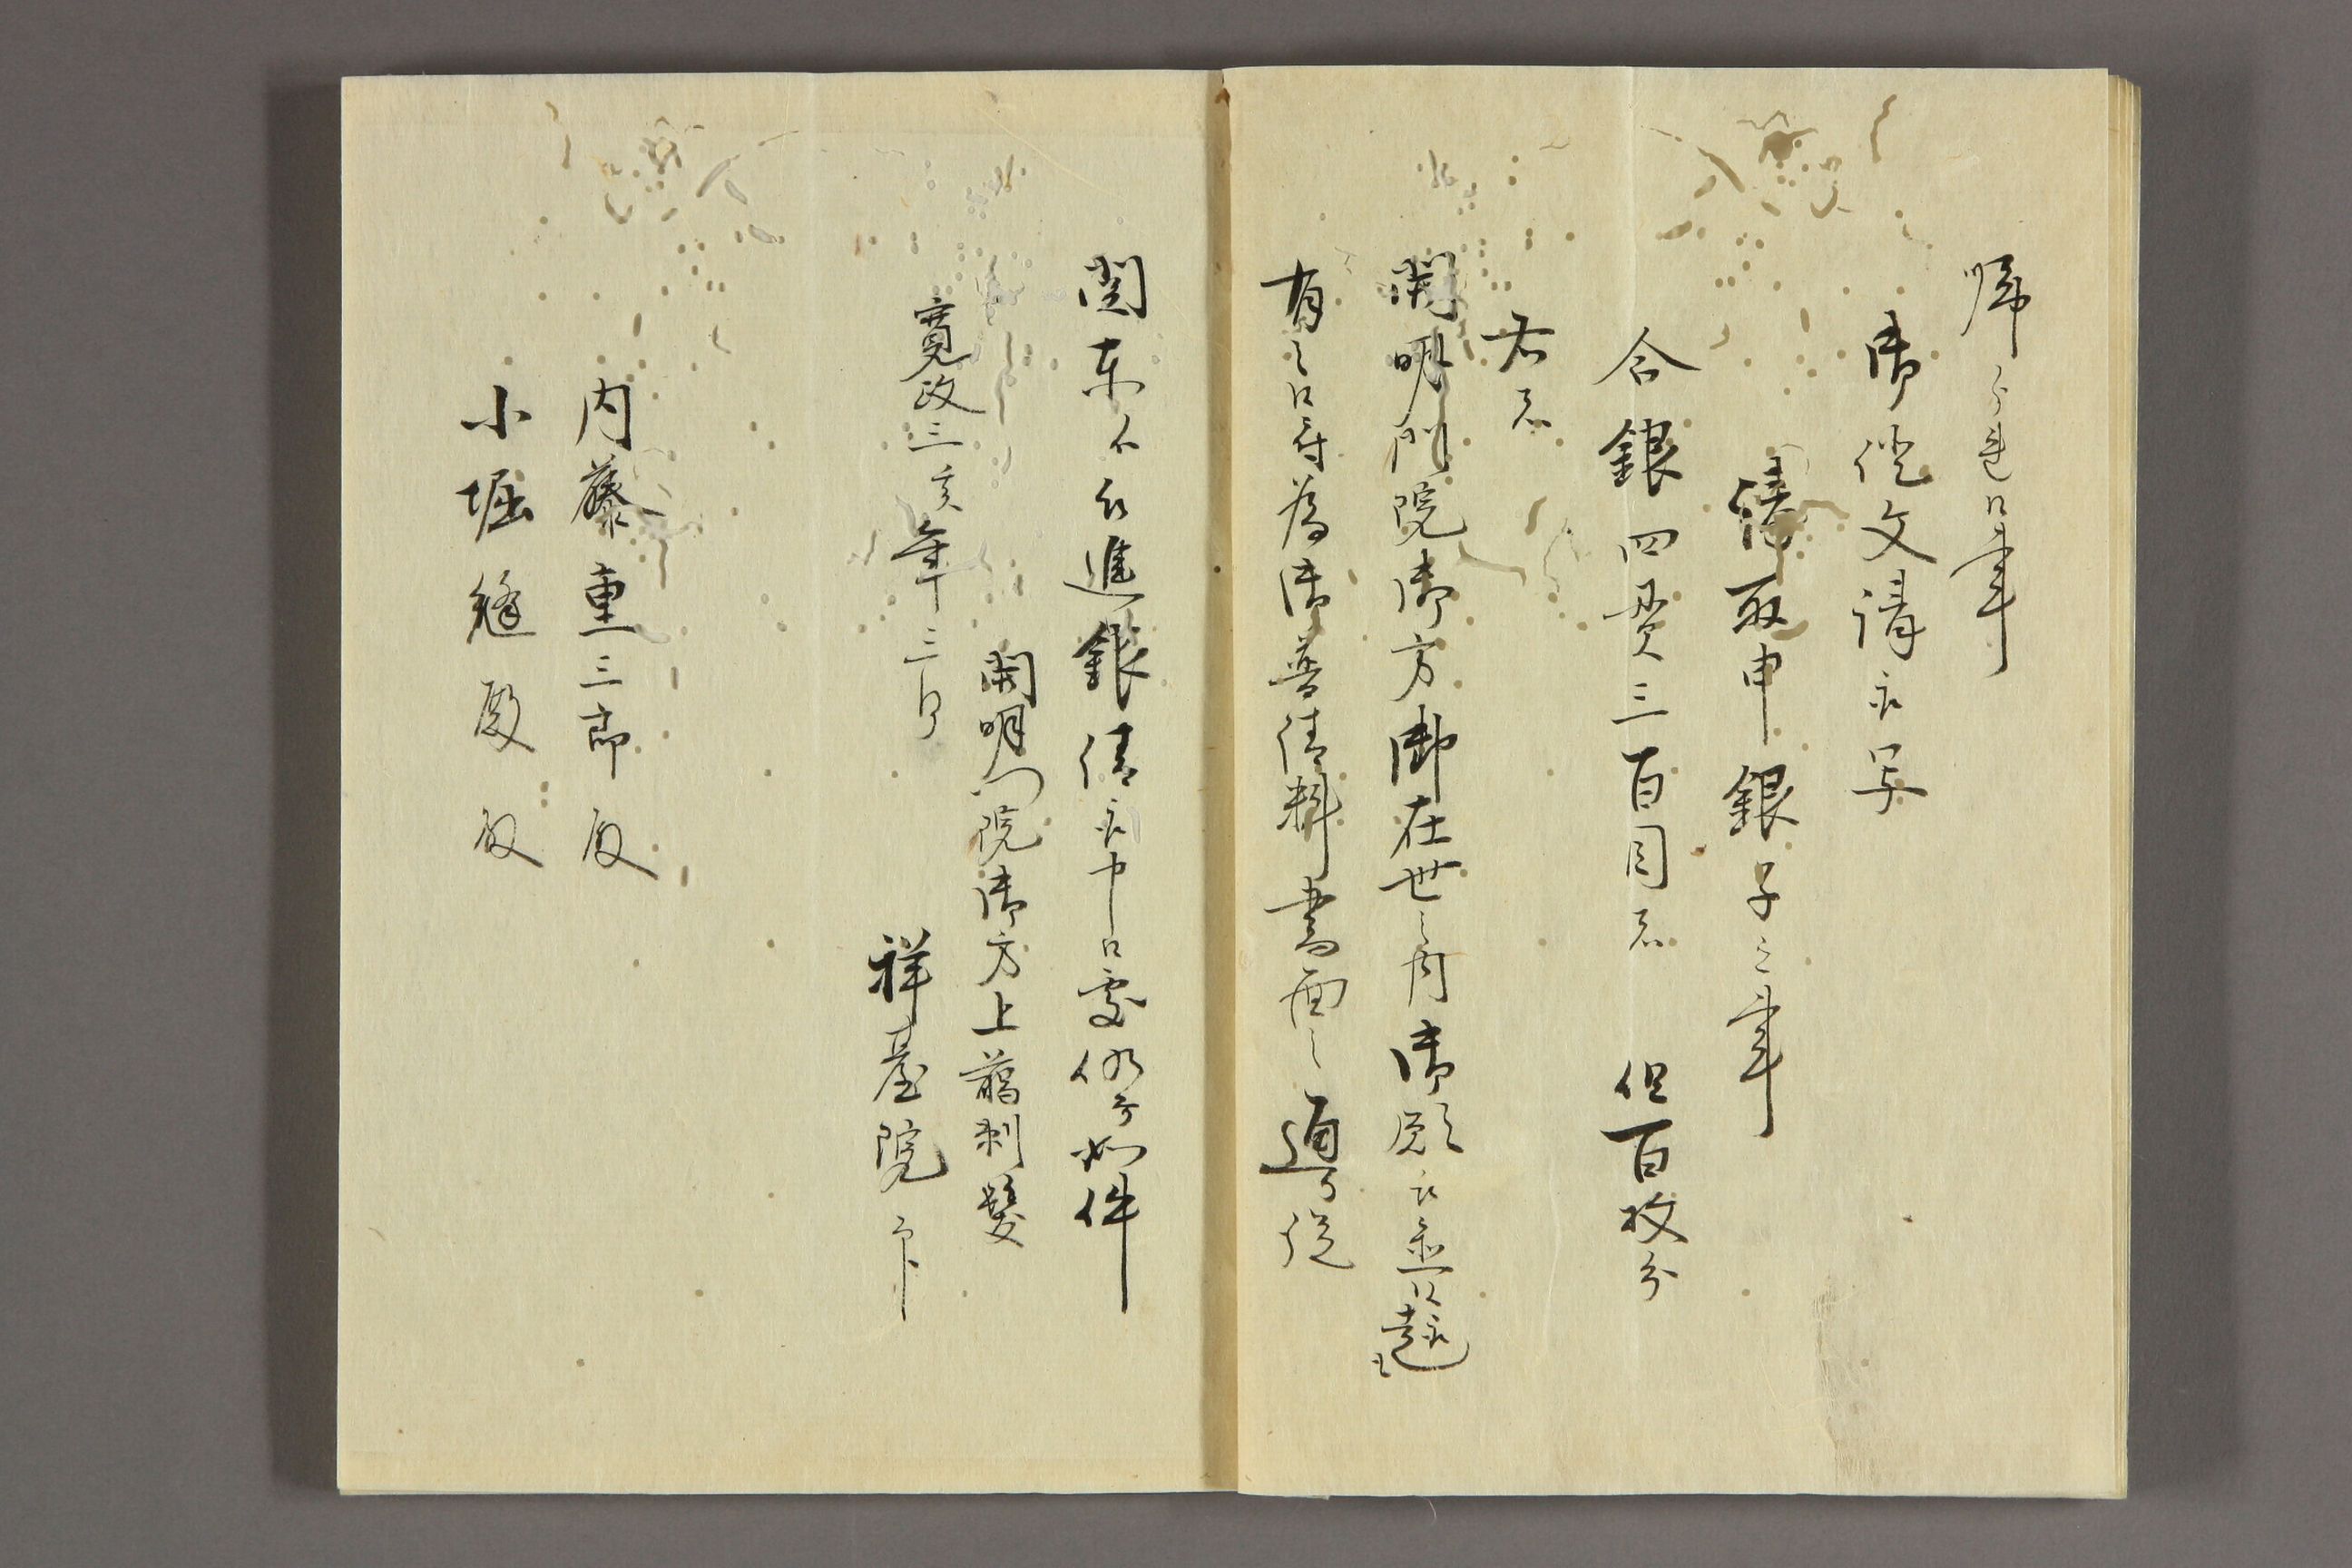 帰ら連候事
御證文請取写
請取申銀子之事
合銀四貫三百目者 但百枚分
右者
開明門院御方御在世之内御願被置候趣も
有之候ニ付為御普請料書面之通り従
関東被進銀請取申候処仍而如件
開明門院御方上﨟剃髪
寛政三亥年三月
祥臺院 印
内藤重三郎殿
小堀縫殿殿